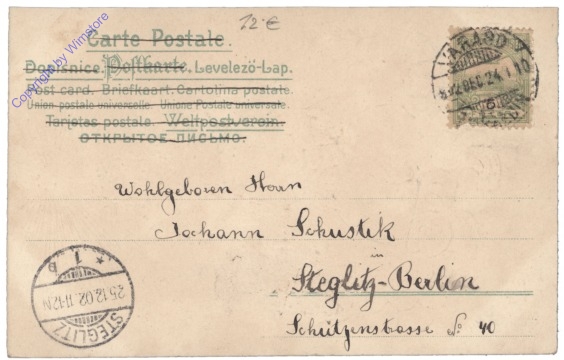 12.€
Carte Postale.
Dopisnice. Postkarte. Levelező-Lap.
Post card. Briefkaart. Cartolina postale.
Union postale universelle. Unione Postale universale.
Tarjetas postale. Weltpostverein.
ОТКРЫТОЕ ПИСЬМО.
Copyright by Wimstore
VÁRASD
Wohlgeboren Herrn
Johann Schustik
in
Steglitz-Berlin
Schützenstrasse No 40
* 1 b
25.12.02.11-12N
STEGLITZ